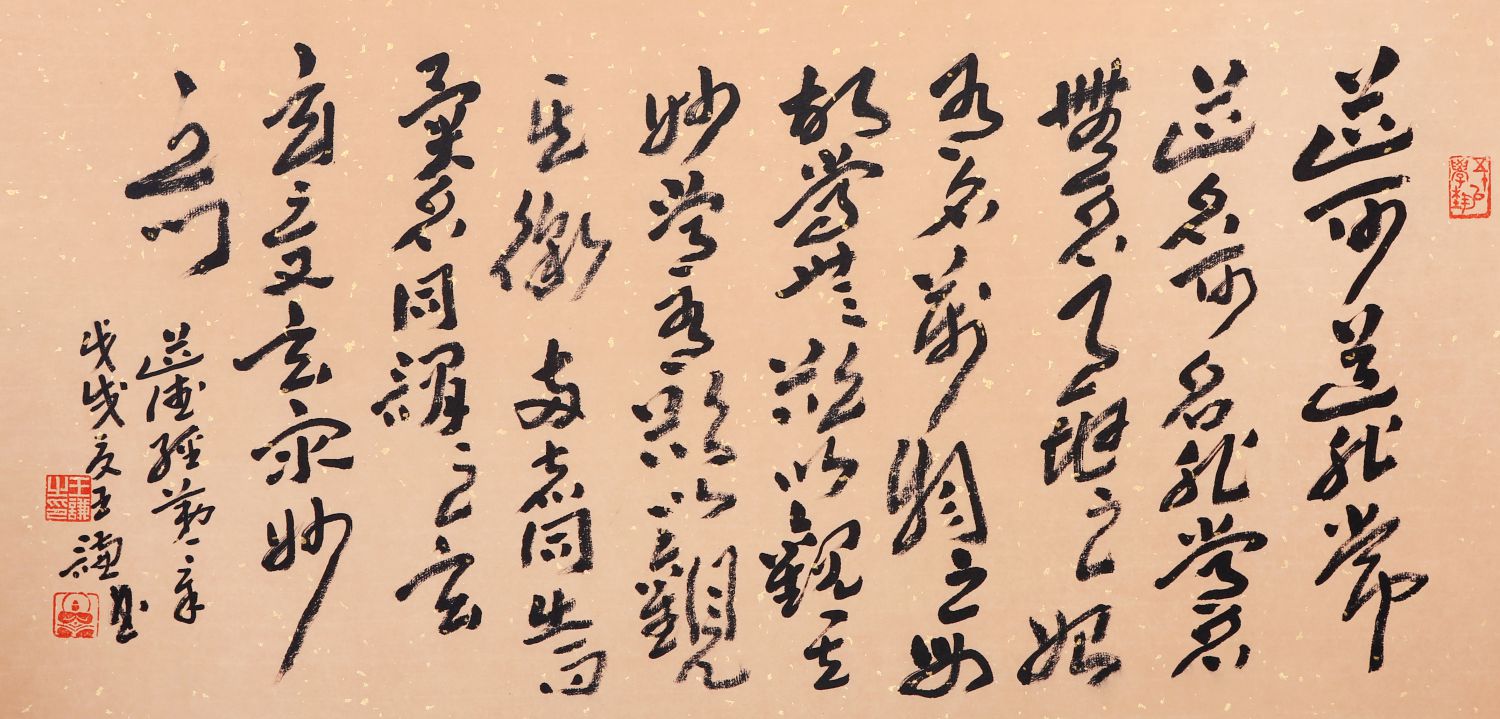 道可道非常
道名可名非常名
無名天地之始
有名萬物之母
故常無欲以觀其
妙常有欲以觀
其徼两者同出而
異名同謂之玄
玄之又玄衆妙
之門
道德經第一章
戊戌夏謙書
王謙之印